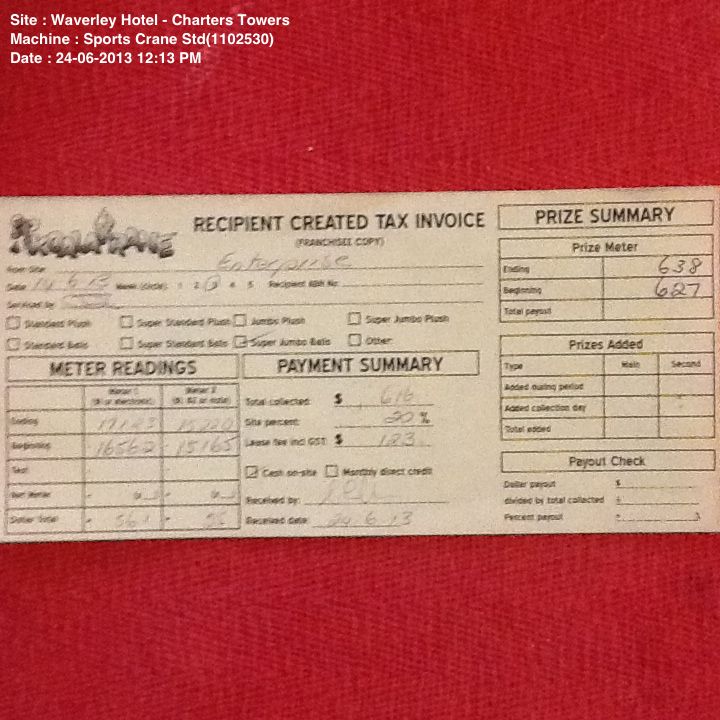 Site : Waverley Hotel - Charters Towers
Machine : Sports Crane Std(1102530)
Date : 24-06-2013 12:13 PM
RECIPIENT CREATED TAX INVOICE
(FRANCHISEE COPY)
From Site: Enterprise
Date Week (circle): 1 2 3 4 5 Recipient ABN No:
Serviced by
Standard Plush Super Standard Plush Jumbo Plush Super Jumbo Plush
Standard Balls Super Standard Balls Super Jumbo Balls Other
METER READINGS
Meter 1 Meter 2
($1 or electronic) ($1, $2 or note)
Ending 17123 15220
Beginning 16562 15165
Test
Dollar Total 561 55
PAYMENT SUMMARY
Total collected: $ 616
Site percent: 20 %
Lease fee incl GST: $ 123
Cash on-site Monthly direct credit
Received by:
Received date: 24 6 13
PRIZE SUMMARY
Prize Meter
Ending 638
Beginning 627
Total payout
Prizes Added
Type Main Second
Added during period
Added collection day
Total added
Payout Check
Dollar payout $
divided by total collected ÷
Percent payout